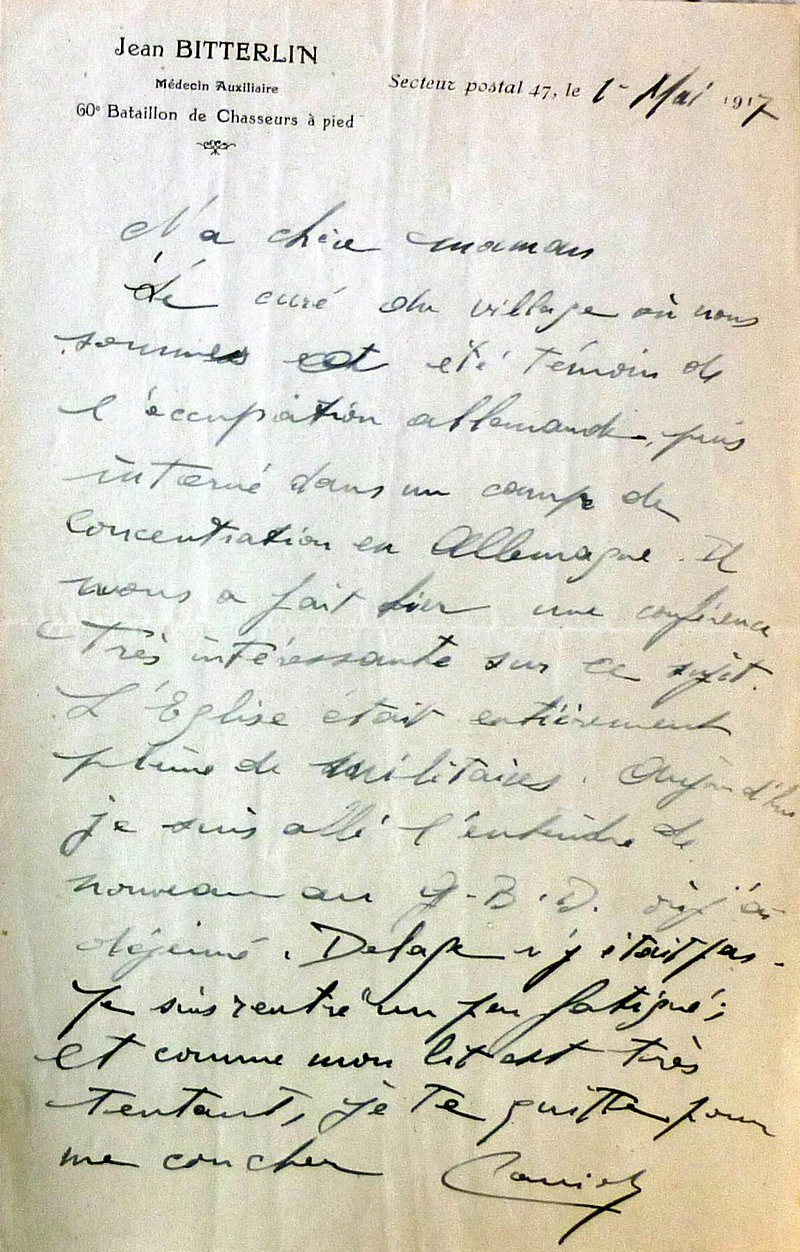 Jean BITTERLIN
Médecin Auxiliaire
60e Bataillon de Chasseurs à pied
Secteur postal 47, le 1er Mai 1917
Ma chère maman
Le curé du village où nous
sommes a été témoin de
l'occupation allemande, puis
interné dans un camp de
concentration en Allemagne. Il
nous a fait hier une conférence
très intéressante sur ce sujet.
L'Eglise était entièrement
pleine de militaires. Aujourd'hui
je suis allé l'entendre de
nouveau au G.B.D. où j'ai
déjeuné. Delage n'y était pas.
Je suis rentré un peu fatigué;
et comme mon lit est très
tentant, je te quitte pour
me coucher